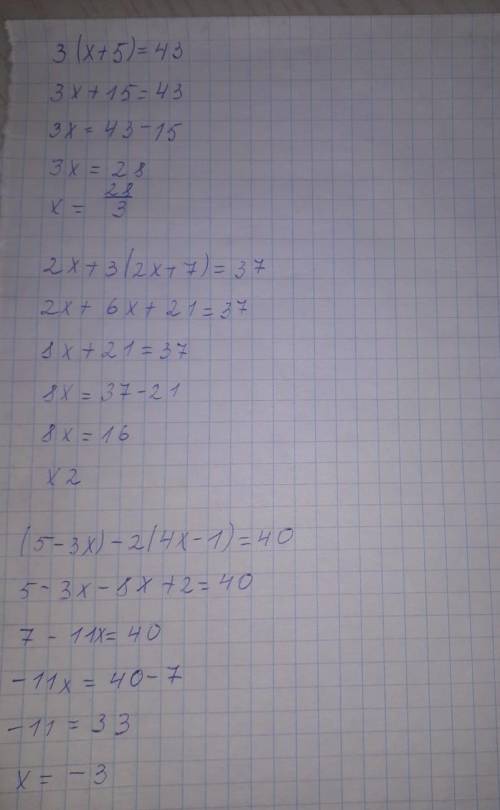 3(x+5)=43
3x+15=43
3x=43-15
3x=28
x=28/3
2x+3(2x+7)=37
2x+6x+21=37
8x+21=37
8x=37-21
8x=16
x2
(5-3x)-2(4x-1)=40
5-3x-8x+2=40
7-11x=40
-11x=40-7
-11=33
x=-3